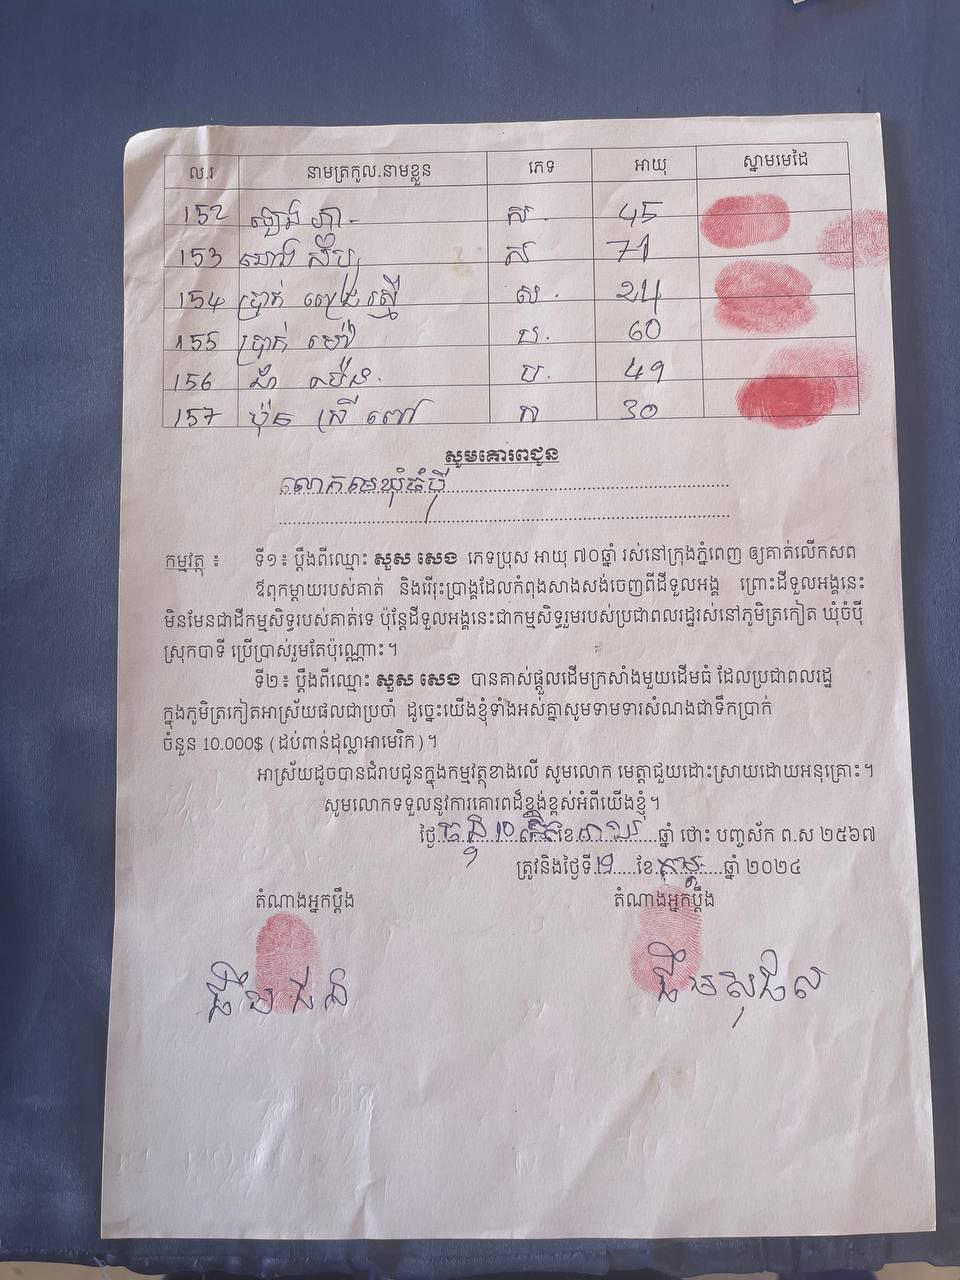 ល.រ នាមត្រកូល.នាមខ្លួន ភេទ អាយុ ស្នាមមេដៃ
152 ស. 45
153 ស 71
154 ប្រាក់ ស្រី ស. 24
155 ប្រាក់ ម៉ៅ ប. 60
156 ប. 49
157 ប៉ុន ស្រី ពៅ ក 30
សូមគោរពជូន
លោកមេឃុំចំប៉ី
កម្មវត្ថុ ៖ ទី១៖ ប្តឹងពីឈ្មោះ សួស សេង ភេទប្រុស អាយុ ៧០ឆ្នាំ រស់នៅក្រុងភ្នំពេញ ឲ្យគាត់លើកសព
ឪពុកម្តាយរបស់គាត់ និងរើរុះប្រាង្គដែលកំពុងសាងសង់ចេញពីដីទួលអង្គ ព្រោះដីទួលអង្គនេះ
មិនមែនជាដីកម្មសិទ្ធរបស់គាត់ទេ ប៉ុន្តែដីទួលអង្គនេះជាកម្មសិទ្ធរួមរបស់ប្រជាពលរដ្ឋរស់នៅភូមិត្រកៀត ឃុំចំប៉ី
ស្រុកបាទី ប្រើប្រាស់រួមតែប៉ុណ្ណោះ។
ទី២៖ ប្តឹងពីឈ្មោះ សួស សេង បានគាស់ផ្តួលដើមក្រសាំងមួយដើមធំ ដែលប្រជាពលរដ្ឋ
ក្នុងភូមិត្រកៀតអាស្រ័យផលជាប្រចាំ ដូច្នេះយើងខ្ញុំទាំងអស់គ្នាសូមទាមទារសំណងជាទឹកប្រាក់
ចំនួន 10.000$ (ដប់ពាន់ដុល្លាអាមេរិក)។
អាស្រ័យដូចបានជំរាបជូនក្នុងកម្មវត្ថុខាងលើ សូមលោក មេត្តាជួយដោះស្រាយដោយអនុគ្រោះ។
សូមលោកទទួលនូវការគោរពដ៏ខ្ពង់ខ្ពស់អំពីយើងខ្ញុំ។
ថ្ងៃ ចន្ទ 10 កើត ខែ ឆ្នាំ ថោះ បញ្ចស័ក ព.ស ២៥៦៧
ត្រូវនិងថ្ងៃទី ខែ កុម្ភៈ ឆ្នាំ ២០២៤
តំណាងអ្នកប្តឹង តំណាងអ្នកប្តឹង